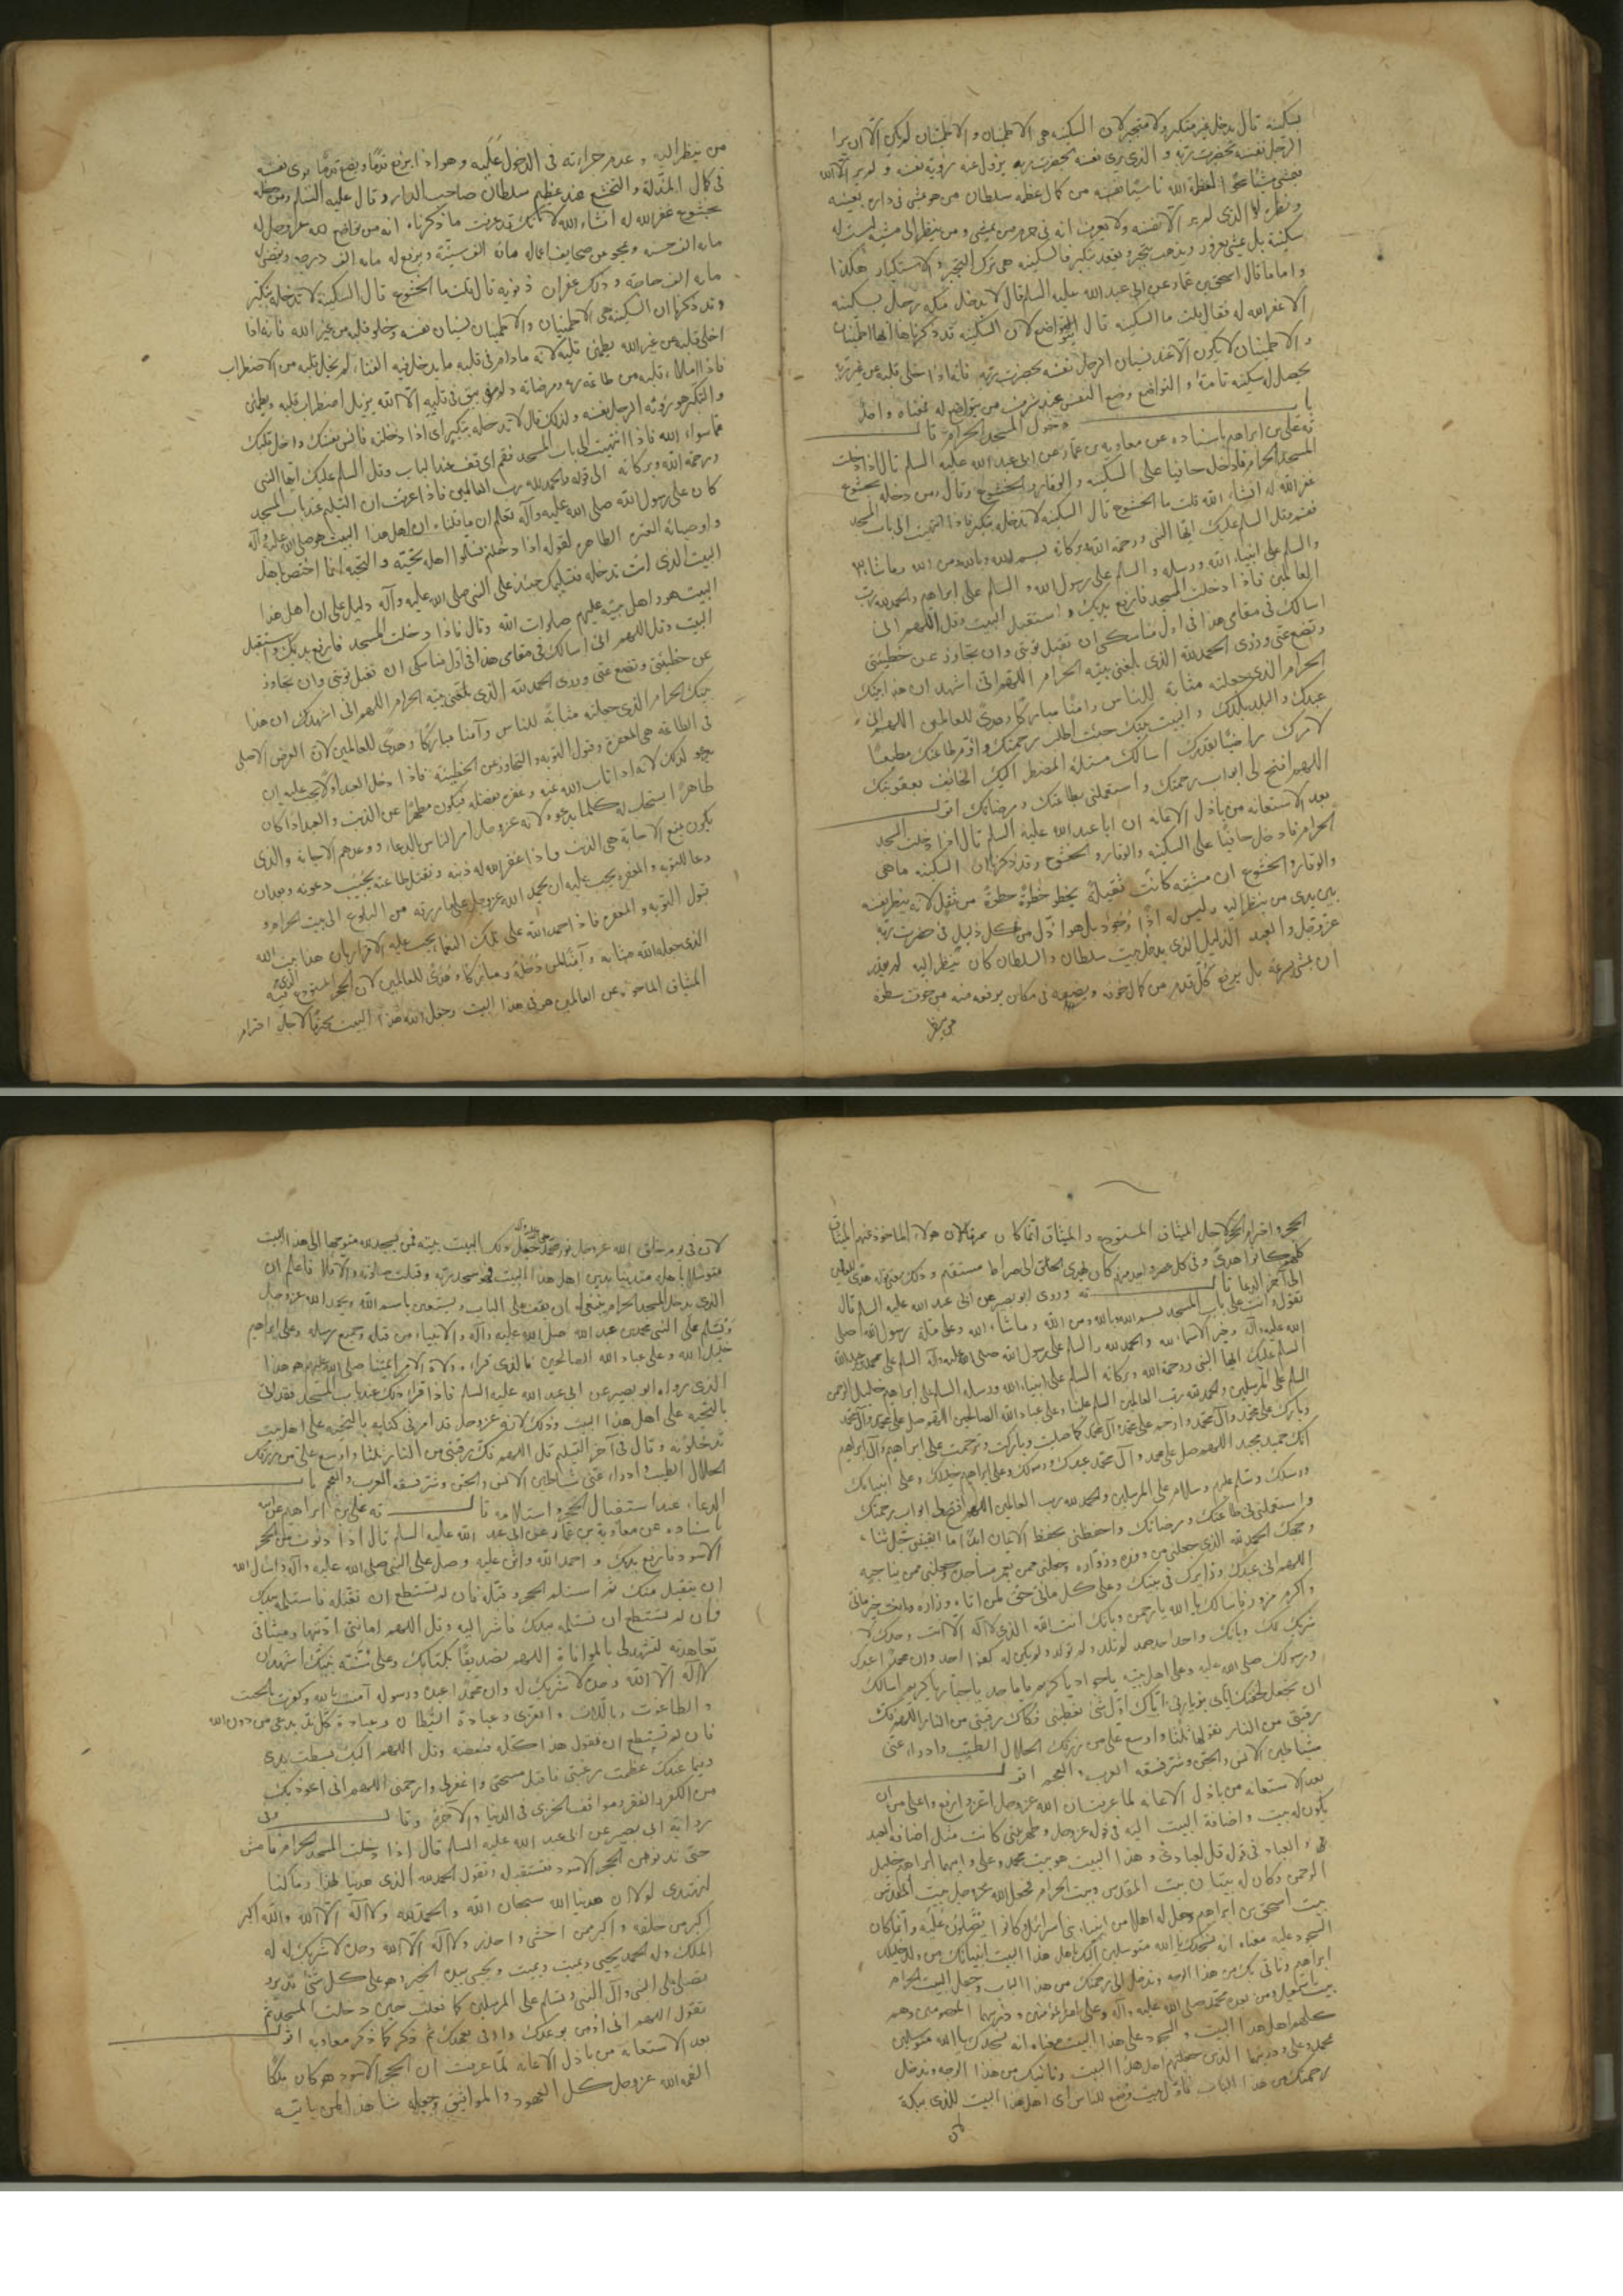 بسكينة قال يدخل غير متكبر ولا متجبر لان السكينة هى الاطمينان و الاطمينان لم يكن الا ان يرا
الرجل نفسه بحضرت ربه و الذى يرى نفسه بحضرت ربه يزول عنه رؤية نفسه و لم ير الا الله
من كمال عظمة سلطان من هو يمشى فى داره بعينه
الذى لم ير الا نفسه ولا يعرف انه فى حرم من يمشى و من ينظر الى مشيه ليست له
سكينة بل يمشى بغرور ويذهب بتجبر ويقعد بتكبر فالسكينة هى ترك التجبر و الاستكبار هكذا
و اما ما قال اسحق بن عمار عن ابى عبد الله عليه السلام قال لا يدخل مكه رجل بسكينه
الا غفر الله له فقال قلت ما السكينه قال التواضع لان السكينه قد ذكرناها انها اطمينان
و الاطمينان لا يكون الا عند نسيان الرجل نفسه بحضرت ربه فانه اذا اخلى قلبه عن غير ربه
يحصل له سكينه تامة و التواضع وضع النفس عند شرف من يتواضع له فمعناه واحد
باب دخول المسجد الحرام قال
ثه على بن ابراهيم باسناده عن معاويه بن عمار عن ابى عبد الله عليه السلام قال اذا دخلت
المسجد الحرام فادخله حافيا على السكينه و الوقار و الخشوع وقال و من دخله بخشوع
غفر الله له انشاء الله قلت ما الخشوع قال السكينه لا تدخله بتكبر فاذا انتهيت الى باب المسجد
فقم وقل السلم عليك ايها النبى ورحمة الله وبركاته بسم الله وبالله ومن الله وما شاء الله
والسلم على انبياء الله ورسله و السلم على رسول الله و السلم على ابراهيم والحمد لله رب
العالمين فاذا دخلت المسجد فارفع يديك و استقبل البيت وقل اللهم انى
اسالك فى مقامى هذا فى اول مناسكى ان تقبل توبتى وان تجاوز عن خطيئتى
وتضع عنى وزرى الحمد لله الذى بلغنى بيته الحرام اللهم انى اشهد ان هذا بيتك
الحرام الذى جعلته مثابة للناس وامنا مباركا وهدى للعالمين اللهم انى
عبدك والبلد بلدك و البيت بيتك جئت اطلب رحمتك واؤم طاعتك مطيعا
لامرك راضيا بقدرك اسالك مسئلة المضطر اليك الخائف لعقوبتك
اللهم افتح لى ابواب رحمتك و استعملنى بطاعتك ومرضاتك اقول
بعد الاستعانه من باذل الاعانه ان ابا عبد الله عليه السلم قال اذا دخلت المسجد
الحرام فادخله حافيا على السكينه والوقار و الخشوع وقد ذكرنا ان السكينه ما هى
والوقار و الخشوع ان مشيته كانت ثقيلة يخطو خطوة خطوة من ثقل لانه ينظر نفسه
بين يدى من ينظر اليه وليس له اذا وجود بل هو اذل من كل ذليل فى حضرت ربه
عز وجل و العبد الذليل الذى يدخل بيت سلطان و السلطان كان ينظر اليه لم يقدر
ان يمشى بسرعة بل يرفع كل قدم من كمال خوفه ويضعه فى مكان يرفعه منه من خوف سطوة
من ينظر
من ينظر اليه و عدم جراءته فى الدخول عليه وهو اذا يرفع قدما ويضع قدما يرى نفسه
فى كمال المذلة و التخشع عند عظيم سلطان صاحب الدار و قال عليه السلم ومن دخله
بخشوع غفر الله له انشاء الله لانك قد عرفت ما ذكرناه انه من تواضع لله عز وجل له
ماه الف حسنه و يمحو من صحايف اعماله ماه الف سيئة ويرفع له ماه الف درجه ويقضى له
ماه الف حاجته و ذلك غفران ذنوبه قال قلت ما الخشوع قال السكينة لا تدخله بتكبر
وقد ذكرنا ان السكينه هى الاطمينان والاطمينان نسيان نفسه وخلو قلبه من غير الله فانه اذا
اخلى قلبه من غير الله يطمئن قلبه لانه مادام فى قلبه ما يدخل فيه الفناء لم يخل قلبه من الاضطراب
فاذا املاء قلبه من طاعة ربه ومرضاته ولم يبق فى قلبه الا الله يزول اضطراب قلبه ويطمئن
و التكبر هو رؤية الرجل نفسه ولذلك قال لا تدخله بتكبر اى اذا دخلته فانس نفسك واخل قلبك
مما سواء الله فاذا انتهيت الى باب المسجد فقم اى قف عند الباب وقل السلم عليك ايها النبى
ورحمة الله وبركاته الى قوله والحمد لله رب العالمين فاذا عرفت ان التسليم عند باب المسجد
كان على رسول الله صلى الله عليه وآله تعلم ان ما قلناه ان اهل هذا البيت هو صلى الله عليه وآله
واوصيائه العتره الطاهره لقوله اذا دخلتم فسلموا اهله بتحيته و التحية انما اختص باهل
البيت الذى انت تدخله فتسليمك حينئذ على النبى صلى الله عليه وآله دليل على ان اهل هذا
البيت هو و اهل بيته عليهم صلوات الله وقال فاذا دخلت المسجد فارفع يديك و استقبل
البيت وقل اللهم انى اسالك فى مقامى هذا فى اول مناسكى ان تقبل توبتى وان تجاوز
عن خطيئتى وتضع عنى وزرى الحمد لله الذى بلغنى بيته الحرام اللهم انى اشهدك ان هذا
بيتك الحرام الذى جعلته مثابة للناس وآمنا مباركا وهدى للعالمين لان الغرض الاصلى
فى الطاعة هى المغفرة وقبول التوبة و التجاوز من الخطيئه فاذا دخل العبد اولا يجب عليه ان
يدعو لذلك لانه اذا تاب الله عليه وغفره بفضله فيكون مطهرا عن الذنب و العبد اذا كان
طاهرا استجاب له كلما يدعوه لانه عز وجل امر الناس بالدعاء ووعدهم الاجابة والذى
يكون يمنع الاجابة هى الذنب فاذا غفر الله له ذنبه وتقبل طاعته يجيب دعوته وبعد ان
دعا للتوبه و المغفره يجب عليه ان يحمد الله عز وجل على ما رزقه من البلوغ الى بيت الحرام و
قبول التوبه و المغفره فاذا حمد الله على تلك النعماء يجب عليه الاقرار بان هذا بيت الله
الذى جعله الله مثابة و آمنا لمن دخله ومباركا وهدى للعالمين لان الحجر المستودع فيه
الميثاق الماخوذ عن العالمين هو فى هذا البيت وجعل الله هذا البيت محترما لاجل احترام
الحجر و احترام الحجر لاجل الميثاق المستودع و الميثاق انما كان هولاء الماخوذ عنهم الميثاق
كلهم كانوا هدى وفى كل عصر واحد منهم كان يهدى الخلق الى صراط مستقيم و ذلك معنى قوله هدى للعالمين
الى آخر الدعا قال ثه وروى ابو بصير عن ابى عبد الله عليه السلم قال
تقول وانت على باب المسجد بسم الله وبالله ومن الله وما شاء الله وعلى ملة رسول الله صلى
الله عليه وآله وخير الاسماء لله والحمد لله والسلم على رسول الله صلى الله عليه وآله السلم على محمد بن عبد الله
السلم عليك ايها النبى ورحمة الله وبركاته السلم على انبياء الله ورسله السلم على ابراهيم خليل الرحمن
السلم على المرسلين والحمد لله رب العالمين السلم علينا وعلى عباد الله الصالحين اللهم صل على محمد وآل محمد
وبارك على محمد وآل محمد وارحم على محمد وآل محمد كما صليت وباركت وترحمت على ابراهيم وآل ابراهيم
انك حميد مجيد اللهم صل على محمد وآل محمد عبدك ورسولك وعلى ابراهيم خليلك وعلى انبيائك
ورسلك وسلم عليهم وسلام على المرسلين والحمد لله رب العالمين اللهم افتح لى ابواب رحمتك
واستعملنى فى طاعتك ومرضاتك واحفظنى بحفظ الايمان ابدا ما ابقيتنى جل ثناء
وجهك الحمد لله الذى جعلنى من وفده وزواره وجعلنى ممن يعمر مساجده وجعلنى ممن يناجيه
اللهم انى عبدك وزايرك فى بيتك وعلى كل ماتى حق لمن اتاه وزاره وانت خير ماتى
واكرم مزور فاسالك يا الله يا رحمن وبانك انت الله الذى لا اله الا انت وحدك لا
شريك لك وبانك واحد احد صمد لم تلد ولم تولد ولم يكن له كفوا احد وان محمدا عبدك
ورسولك صلى الله عليه وعلى اهل بيته يا جواد يا كريم يا ماجد يا جبار يا كريم اسالك
ان تجعل تحفتك اياى بزيارتى اياك اول شئ تعطينى فكاك رقبتى من النار اللهم فك
رقبتى من النار تقولها ثلثا واوسع على من رزقك الحلال الطيب وادراء عنى
شياطين الانس والجن وشر فسقه العرب و العجم اقول
بعد الاستعانه من باذل الاعانه لما عرفت ان الله عز وجل اعز و ارفع واعلى من ان
يكون له بيت و اضافة البيت اليه فى قوله عز وجل و طهر بيتى كانت مثل اضافة العبد
و العباد فى قوله قل لعبادى و هذا البيت هو بيت محمد وعلى وابيهما ابراهيم خليل
الرحمن وكان له بيتان بيت المقدس وبيت الحرام فجعل الله عز وجل بيت المقدس
بيت اسحق بن ابراهيم وجعل له اهلا من انبياء بنى اسرائيل وكانوا يصلون عليه و انما كان
السجود عليه معناه انه نسجدك يا الله متوسلين اليك باهل هذا البيت انبيائك من ولد خليلك
ابراهيم وناتى بك من هذا الوجه وندخل الى رحمتك من هذا الباب وجعل البيت الحرام
بيت اسمعيل ومن بعده محمد صلى الله عليه وآله وعلى امير المؤمنين وذريتهما المعصومين وهم
كلهم اهل هذا البيت و السجود على هذا البيت معناه انه نسجدك يا الله متوسلين
بمحمد وعلى وذريتهما الذين جعلتهم اهل هذا البيت وناتيك من هذا الوجه وندخل
رحمتك من هذا الباب فاول بيت وضع للناس اى اهل هذا البيت للذى ببكة
لان
لان فى يوم خلق الله عز وجل نور محمد جعل ذلك البيت بيته فمن يسجد لله متوجها الى هذا البيت
متوسلا باهله متدينا بدين اهل هذا البيت فهو سجد ربه وقبلت صلوته والا فلا فاعلم ان
الذى يدخل المسجد الحرام ينبغى له ان يقف على الباب ويستعين باسم الله ويحمد الله عز وجل
ويسلم على النبى محمد بن عبد الله صلى الله عليه وآله والانبياء من قبله وجميع رسله وعلى ابراهيم
خليل الله وعلى عباد الله الصالحين فالذى قراءه ولاة الامر ائمتنا صلى الله عليهم هو هذا
الذى رواه ابو بصير عن ابى عبد الله عليه السلم فاذا قراء ذلك عند باب المسجد فقد اتى
بالتحية على اهل هذا البيت وذلك لانه عز وجل قد امر فى كتابه بالتحية على اهل بيت
تدخلونه وقال فى آخر التسليم قل اللهم فك رقبتى من النار ثلثا واوسع على من رزقك
الحلال الطيب وادراء عنى شياطين الانس والجن وشر فسقه العرب والعجم باب
الدعاء عند استقبال الحجر و استلامه قال ثه على بن ابراهيم عن ابيه
باسناده عن معاوية بن عمار عن ابى عبد الله عليه السلم قال اذا دنوت من الحجر
الاسود فارفع يديك و احمد الله واثن عليه وصل على النبى صلى الله عليه وآله واسال الله
ان يتقبل منك ثم استلم الحجر وقبله فان لم تستطع ان تقبله فاستلمه بيدك
فان لم تستطع ان تستلمه بيدك فاشر اليه وقل اللهم امانتى اديتها وميثاقى
تعاهدته لتشهد لى بالموافاة اللهم تصديقا بكتابك وعلى سنته نبيك اشهد ان
لا اله الا الله وحده لا شريك له وان محمدا عبده ورسوله آمنت بالله وكفرت بالجبت
و الطاغوت وباللات و العزى وعبادة الشيطان وعبادة كل ند يدعى من دون الله
فان لم تستطع ان تقول هذا كله فبعضه وقل اللهم اليك بسطت يدى
وفيما عندك عظمت رغبتى فاقبل مسحتى واغفر لى وارحمنى اللهم انى اعوذ بك
من الكفر والفقر ومواقف الخزى فى الدنيا والآخرة وقال وفى
رواية ابى بصير عن ابى عبد الله عليه السلم قال اذا دخلت المسجد الحرام فامش
حتى تدنو من الحجر الاسود فتستقبله وتقول الحمد لله الذى هدينا لهذا وما كنا
لنهتدى لولا ان هدينا الله سبحان الله والحمد لله ولا اله الا الله والله اكبر
اكبر من خلقه و اكبر ممن اخشى واحذر ولا اله الا الله وحده لا شريك له له
الملك وله الحمد يحيى ويميت ويميت ويحيى بيده الخير وهو على كل شئ قدير و
تصلى على النبى وآل النبى وتسلم على المرسلين كما فعلت حين دخلت المسجد ثم
تقول اللهم انى اؤمن بوعدك واوفى بعهدك ثم ذكر كما ذكر معاويه اقول
بعد الاستعانه من باذل الاعانه لما عرفت ان الحجر الاسود هو كان ملكا
القمه الله عز وجل كل العهود و المواثيق وجعله شاهدا لمن ياتيه